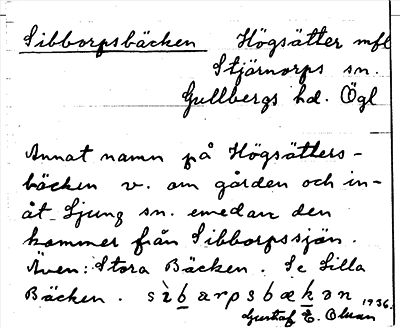 Sibborpsbäcken Högsätter mfl
Stjärnorps sn.
Gullbergs hd. Ögl
Annat namn på Högsätters-
bäcken v. om gården och in-
åt Ljung sn. emedan den
kommer från Sibborpssjön.
Även: Stora Bäcken. Se Lilla
Bäcken. sìbarpsbækən 1936.
Gustaf E. Olsson